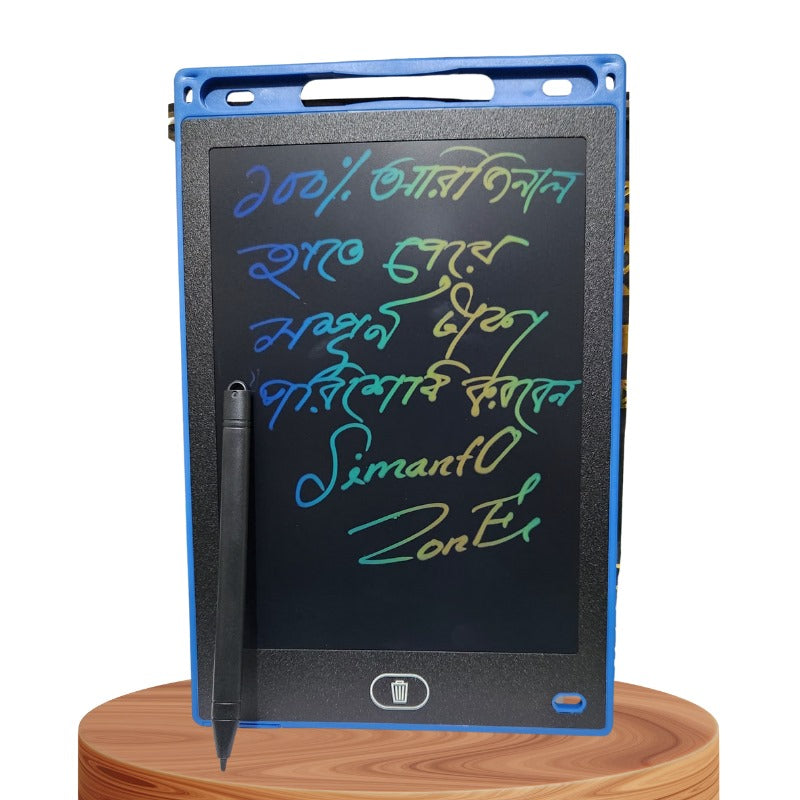 ১০০% অরিজিনাল
হাতে পেয়ে
সম্পূর্ন টাকা
পরিশোধ করবেন
Simanto
Zone